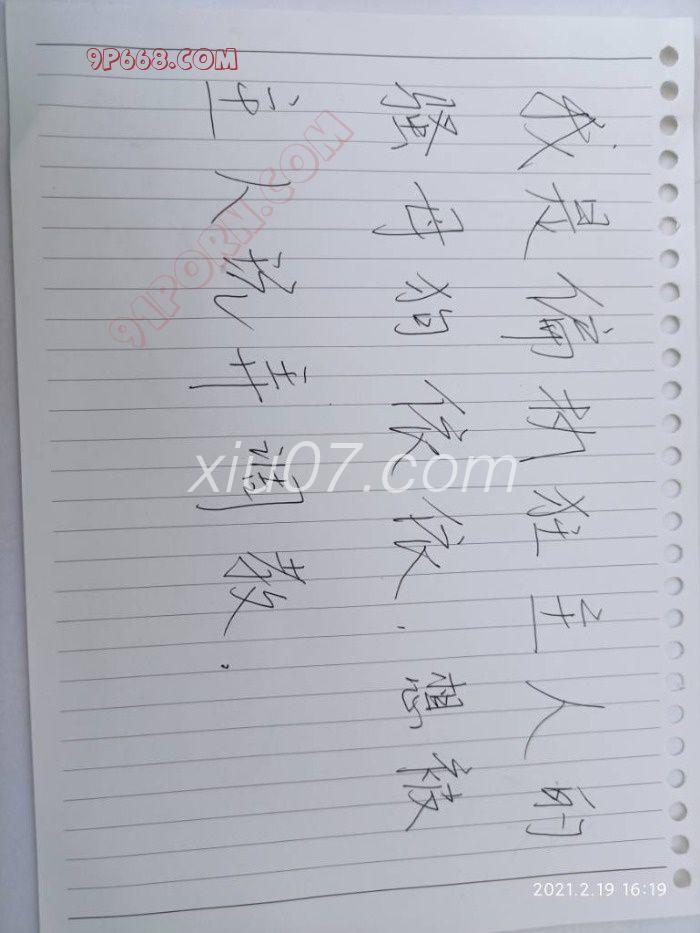 我是偏执狂主人的
骚母狗依依.想被
主人玩弄调教.
9P668.COM
91PORN.COM
xiu07.com
2021.2.19 16:19